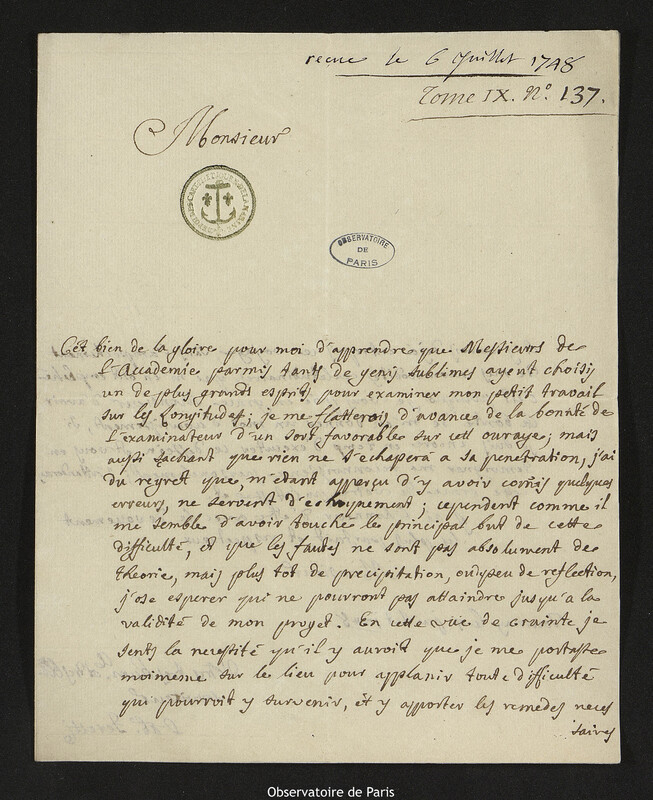 recue le 6 Juillet 1748
Tome IX. N.º 137.
Monsieur
OBSERVATOIRE
DE
PARIS
C'ét bien de la gloire pour moi d'apprendre que Messieurs de
l'Accademie parmis tants de genis sublimes ayent choisis
un de plus grands esprits pour examiner mon petit travail
sur les Longitudes; je me flatterois d'avance de la bonté de
l'examinateur d'un sort favorable sur cett ouvrage; mais
aussi sachant que rien ne s'echapera a sa penetration, j'ai
du regret que, m'etant apperçu d'y avoir comis quelques
erreurs, ne servent d'echopement; cependent comme il
me semble d'avoir touché le principal but de cette
difficulté, et que les fautes ne sont pas absolument de
theorie, mais plus tot de precipitation, ou peu de reflection,
j'ose esperer qui ne pourront pas attaindre jusqu'a la
validité de mon proget. En cette vüe de crainte je
sents la necessité qu'il y auroit que je me portasse
moimeme sur le lieu pour applanir toute difficulté
qui pourroit y survenir, et y apporter les remedes neces
saires
Observatoire de Paris